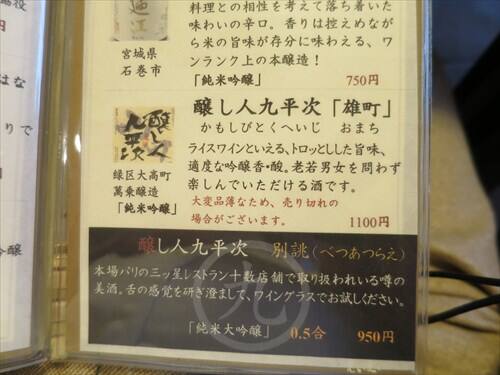 料理との相性を考えて落ち着いた
味わいの辛口。香りは控えめなが
ら米の旨味が存分に味わえる、ワ
ンランク上の本醸造！
宮城県
石巻市
「純米吟醸」 750円
醸し人九平次「雄町」
かもしびとくへいじ おまち
ライスワインといえる、トロッとした旨味、
適度な吟醸香・酸。老若男女を問わず
楽しんでいただける酒です。
大変品薄なため、売り切れの
場合がございます。 1100円
醸し人
九平次
緑区大高町
萬乗醸造
「純米吟醸」
醸し人九平次 別誂（べつあつらえ）
本場パリの三ッ星レストラン十数店舗で取り扱われいる噂の
美酒。舌の感覚を研ぎ澄まして、ワイングラスでお試しください。
「純米大吟醸」 0.5合 950円